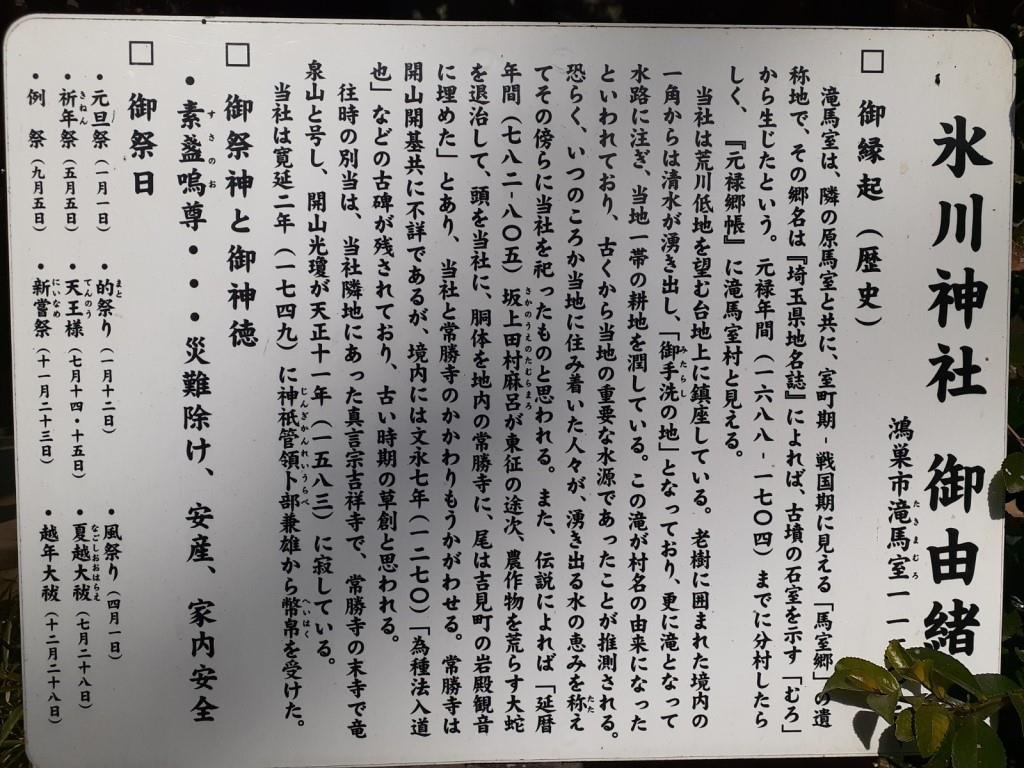 氷川神社 御由緒
鴻巣市滝馬室一一
□ 御縁起（歴史）
滝馬室は、隣の原馬室と共に、室町期-戦国期に見える「馬室郷」の遺
称地で、その郷名は『埼玉県地名誌』によれば、古墳の石室を示す「むろ」
から生じたという。元禄年間（一六八八-一七〇四）までに分村したら
しく、『元禄郷帳』に滝馬室村と見える。
当社は荒川低地を望む台地上に鎮座している。老樹に囲まれた境内の
一角からは清水が湧き出し、「御手洗の地」となっており、更に滝となって
水路に注ぎ、当地一帯の耕地を潤している。この滝が村名の由来になった
といわれており、古くから当地の重要な水源であったことが推測される。
恐らく、いつのころか当地に住み着いた人々が、湧き出る水の恵みを称え
てその傍らに当社を祀ったものと思われる。また、伝説によれば「延暦
年間（七八二-八〇五）坂上田村麻呂が東征の途次、農作物を荒らす大蛇
を退治して、頭を当社に、胴体を地内の常勝寺に、尾は吉見町の岩殿観音
に埋めた」とあり、当社と常勝寺のかかわりもうかがわせる。常勝寺は
開山開基共に不詳であるが、境内には文永七年（一二七〇）「為種法入道
也」などの古碑が残されており、古い時期の草創と思われる。
往時の別当は、当社隣地にあった真言宗吉祥寺で、常勝寺の末寺で竜
泉山と号し、開山光瓊が天正十一年（一五八三）に寂している。
当社は寛延二年（一七四九）に神祇管領卜部兼雄から幣帛を受けた。
□ 御祭神と御神徳
・素盞嗚尊・・・災難除け、安産、家内安全
□ 御祭日
・元旦祭（一月一日） ・的祭り（一月十二日） ・風祭り（四月一日）
・祈年祭（五月五日） ・天王様（七月十四・十五日） ・夏越大祓（七月二十八日）
・例 祭（九月五日） ・新嘗祭（十一月二十三日） ・越年大祓（十二月二十八日）